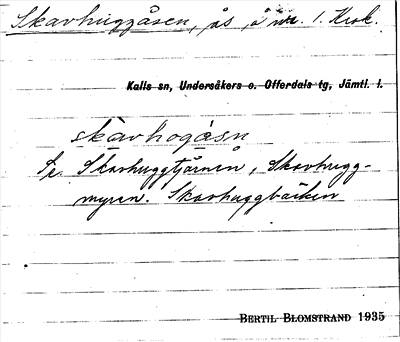 Skavhuggåsen, ås, å nr. 1. Krok.
Kalls sn, Undersåkers o. Offerdals tg, Jämtl. l.
skavhogåsn
Se. Skavhuggtjärnen, Skavhugg-
myren. Skavhuggbäcken
BERTIL BLOMSTRAND 1935